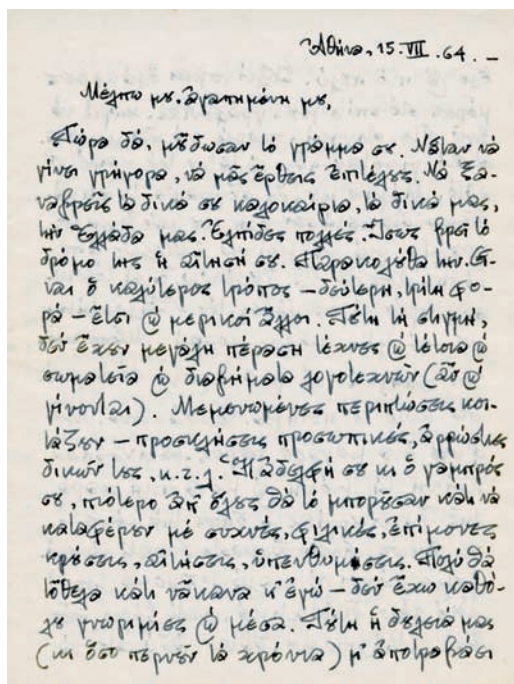 Ἀθήνα, 15.VII.64.–
Μέλπω μου, ἀγαπημένη μου,
Τώρα δά, μοὔδωσαν τὸ γράμμα σου. Νἆταν νὰ
γίνει γρήγορα, νὰ μᾶς ἔρθεις ἐπιτέλους. Νὰ ξα-
ναβρεῖς τὰ δικά σου καλοκαίρια, τὰ δικά μας,
τὴν Ἑλλάδα μας. Ἐλπίδες πολλές. Ἴσως βρεῖ τὸ
δρόμο της ἡ αἴτησή σου. Παρακολούθα την. Εἶ-
ναι ὁ καλύτερος τρόπος – δεύτερη, τρίτη φο-
ρά – ἔτσι καὶ μερικοὶ ἄλλοι. Τούτη τὴ στιγμή,
δὲν ἔχουν μεγάλη πέραση τέχνες καὶ τέτοια καὶ
σωματεῖα καὶ διαβήματα λογοτεχνῶν (ἂν καὶ
γίνονται). Μεμονωμένες περιπτώσεις κοι-
τάζουν – προσκλήσεις προσωπικές, ἀρρώστιες
δικῶν τους, κ.τ.λ. Ἡ ἀδελφή σου κι ὁ γαμπρός
σου, πιότερο ἀπ' ὅλους θὰ τὸ μποροῦσαν κάτι νὰ
καταφέρουν μὲ συχνές, φιλικές, ἐπίμονες
κρούσεις, αἰτήσεις, ὑπενθυμίσεις. Πολὺ θὰ
τὄθελα κάτι νἄκανα κ' ἐγὼ – δὲν ἔχω καθό-
λου γνωριμίες καὶ μέσα. Τούτη ἡ δουλειά μας
(κι ὅσο περνοῦν τὰ χρόνια) μ' ἀποτραβάει